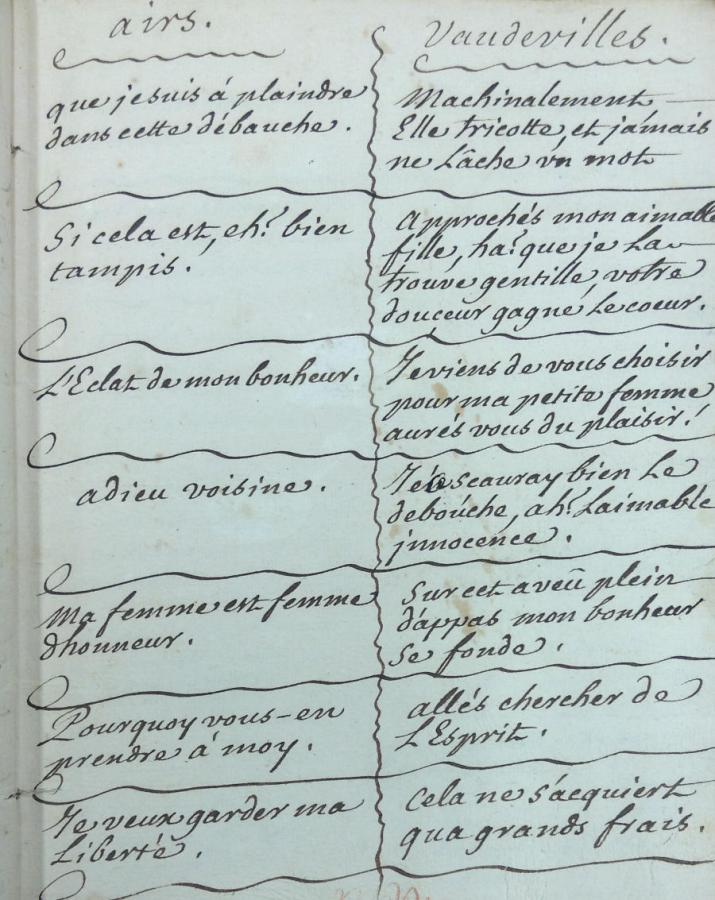 airs.
Vaudevilles.
que je suis á plaindre
dans cette débauche.
Machinalement
Elle tricotte, et jámais
ne Lâche vn mot
Si cela est, eh! bien
tampis.
approchés mon aimable
fille, ha! que je La
trouve gentille, votre
douceur gagne Le coeur.
L'Eclat de mon bonheur.
Je viens de vous choisir
pour ma petite femme
aurés vous du plaisir!
adieu voisine.
scauray bien Le
debouche, ah! Laimable
jnnocence.
Ma femme est femme
dhonneur.
Sur cet aveû plein
d'appas mon bonheur
se fonde.
Pourquoy vous-en
prendre á moy.
allés chercher de
L'Esprit.
Je veux garder ma
Liberté.
Cela ne s'acquiert
qua grands frais.